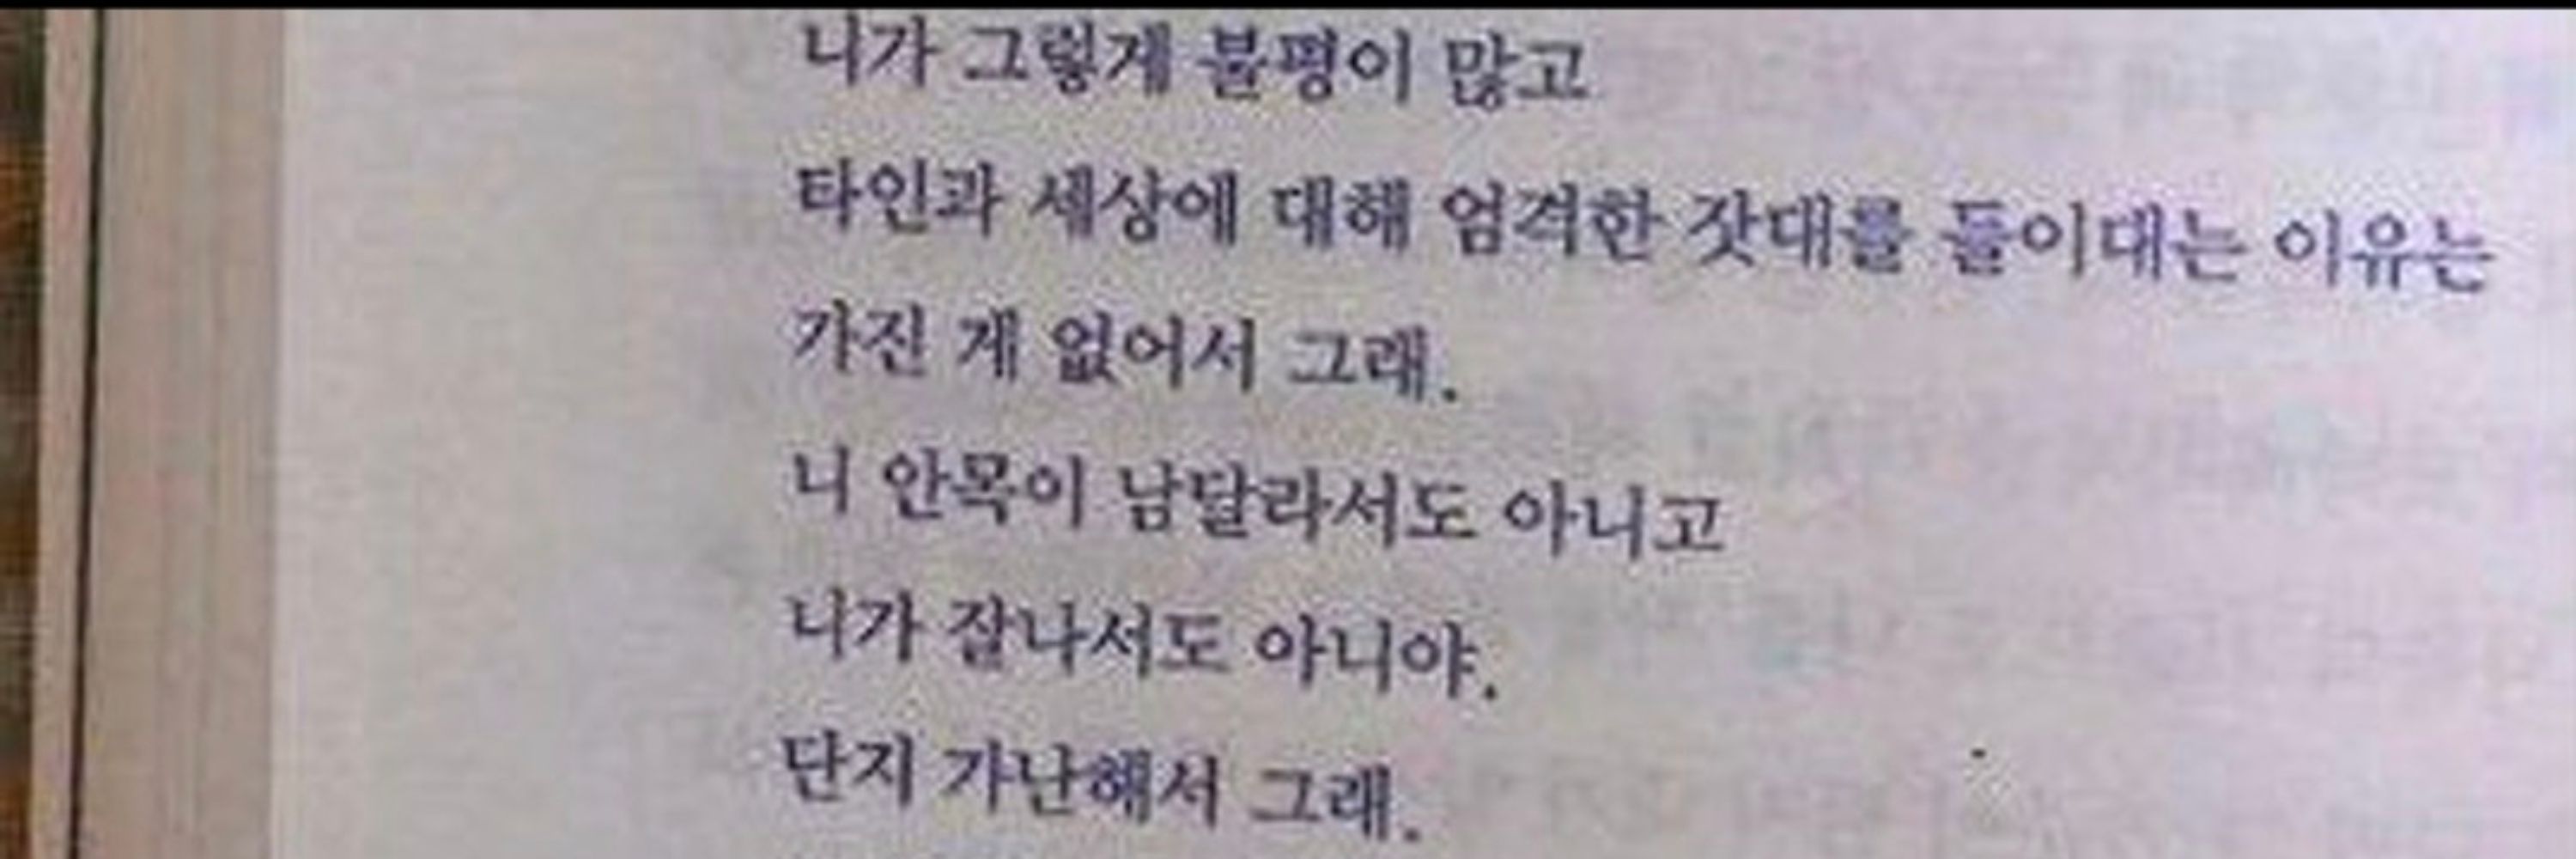 니가 그렇게 불평이 많고
타인과 세상에 대해 엄격한 잣대를 들이대는 이유는
가진 게 없어서 그래.
니 안목이 남달라서도 아니고
니가 잘나서도 아니야.
단지 가난해서 그래.